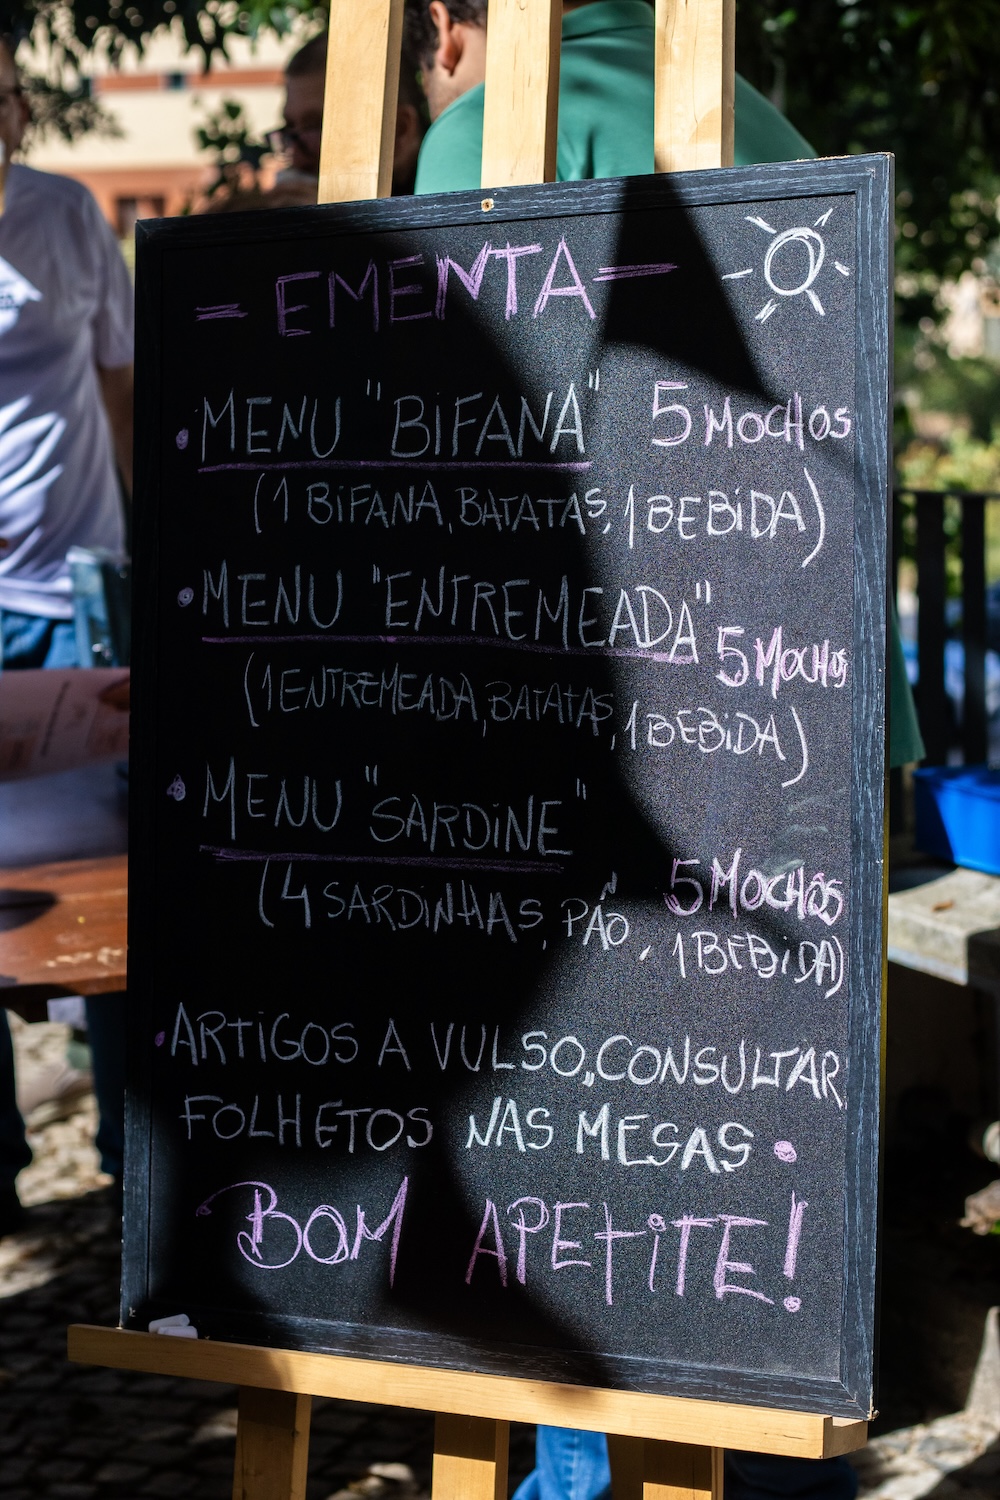 = EMENTA =
• MENU "BIFANA" 5 MOCHOS
(1 BIFANA, BATATAS, 1 BEBIDA)
• MENU "ENTREMEADA" 5 MOCHOS
(1 ENTREMEADA, BATATAS, 1 BEBIDA)
• MENU "SARDINE" 5 MOCHOS
(4 SARDINHAS, PÃO, 1 BEBIDA)
• ARTIGOS A VULSO,, CONSULTAR
FOLHETOS NAS MESAS •
BOM APETITE!